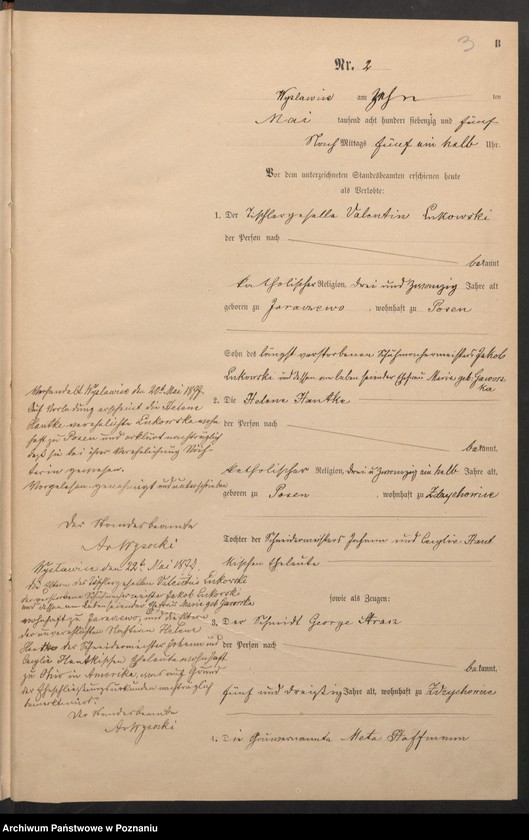 3
B
Nr. 2
am Zehn ten
Mai tausend acht hundert siebenzig und fünf
Nach Mittags fünf ein halb Uhr.
Vor dem unterzeichneten Standesbeamten erschienen heute
als Verlobte:
1. Der Tischlergeselle Valentin Lukowski
der Person nach
bekannt
katholischer Religion, drei und zwanzig Jahre alt
geboren zu Jaraczewo, wohnhaft zu Posen
Sohn des längst verstorbenen Schuhmachermeisters Jakob
Lukowski und dessen am Leben seiender Ehefrau Marie geb.
2. Die Helene Hantke
der Person nach
bekannt,
katholischer Religion, drei u zwanzig ein halb Jahre alt,
geboren zu Posen, wohnhaft zu Zdzychowice
Tochter der Schneidermeister Johann und Hant
kischen Eheleute
sowie als Zeugen:
3. Der Schmidt George
der Person nach
bekannt,
fünf und dreißig Jahre alt, wohnhaft zu Zdzychowice
4. Die Gouvernante Meta Hoffmann
Verhandelt den 20t Mai
Auf Vorladung erscheint die Helene
Hantke verehelichte Lukowska wohn
haft zu Posen und erklärt nachträglich
daß sie bei ihrer Verehelichung
gewesen.
Vorgelesen genehmigt und unterschrieben
Der Standesbeamte
den 22t Mai
Die Eltern des Tischlergesellen Valentin Lukowski
der verstorbene Schuhmachermeister Jakob Lukowski
und dessen am Leben seiender Ehefrau Marie geb
wohnhaft zu Jaraczewo, und die Eltern
der unverehelichten Helene
Hantke der Schneidermeister Johann und
Hantkischen Eheleute wohnhaft
zu in Amerika, was auf Grund
der Eheschließungsurkunden nachträglich
Der Standesbeamte
Archiwum Państwowe w Poznaniu